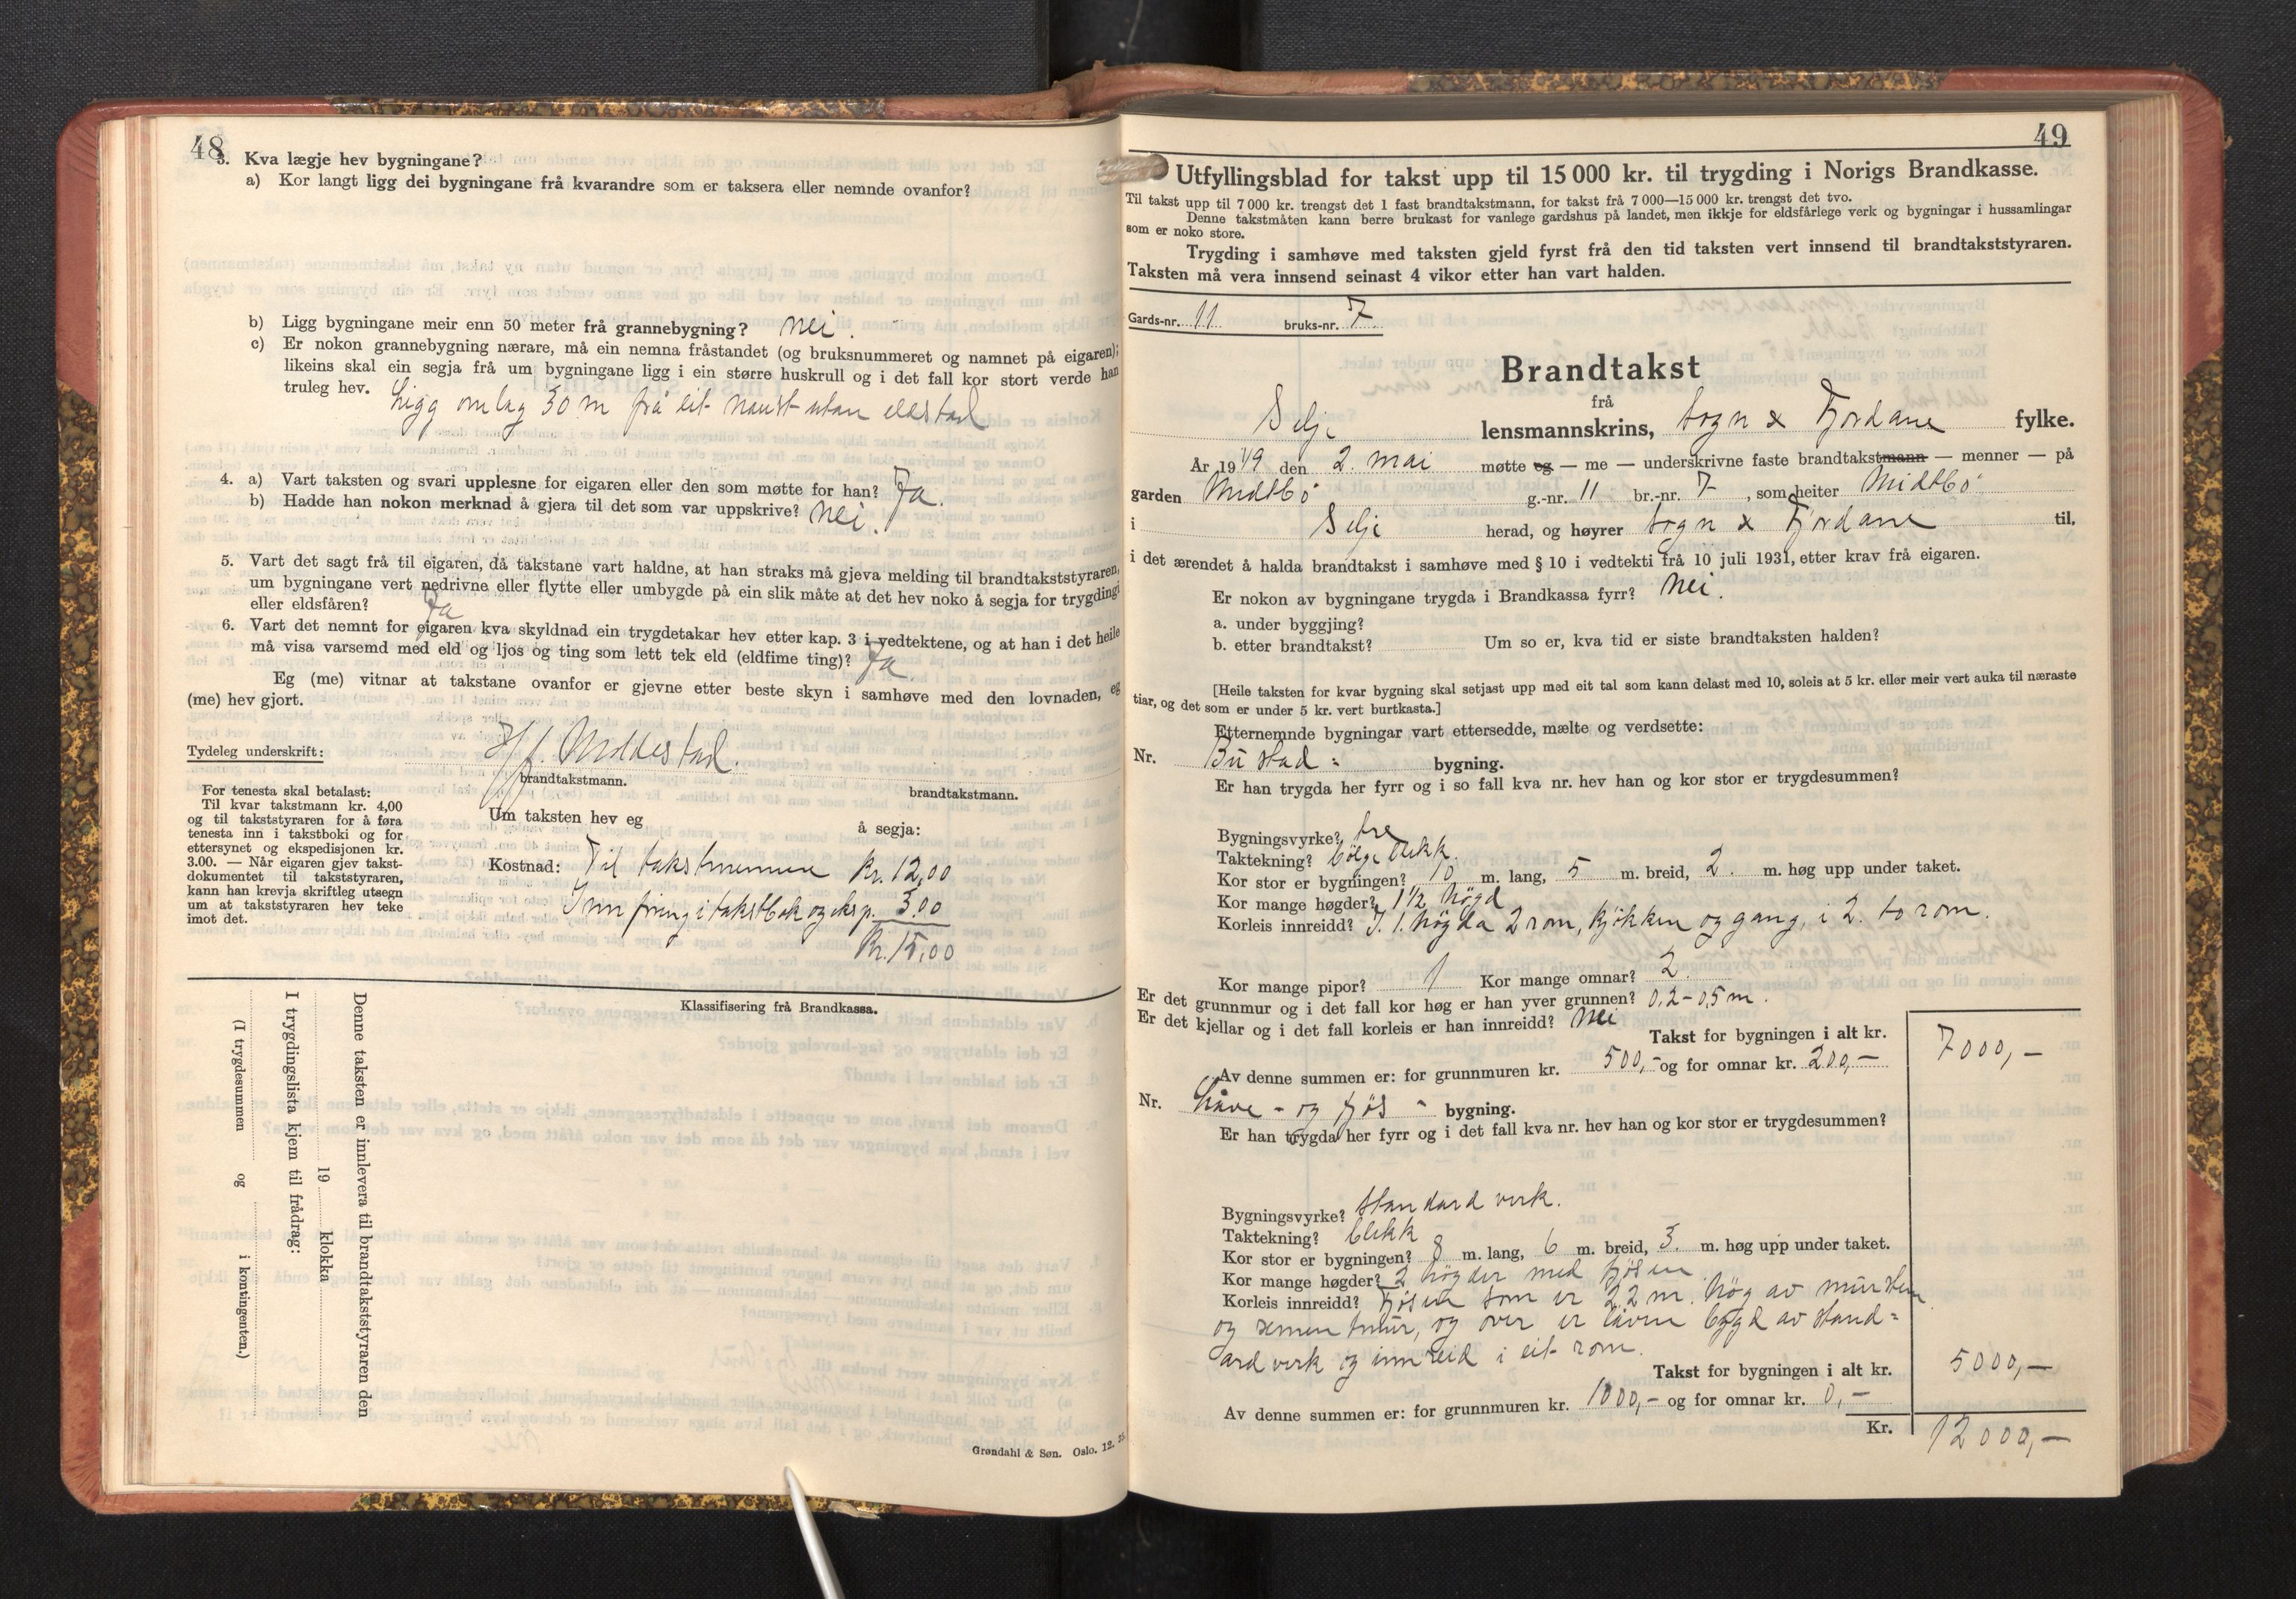 48
3. Kva lægje hev bygningane?
a) Kor langt ligg dei bygningane frå kvarandre som er taksera eller nemnde ovanfor?
b) Ligg bygningane meir enn 50 meter frå grannebygning? nei.
c) Er nokon grannebygning nærare, må ein nemna fråstandet (og bruksnummeret og namnet på eigaren);
likeins skal ein segja frå um bygningane ligg i ein større huskrull og i det fall kor stort verde han
truleg hev. Ligg omlag 30 m frå eit naust utan eldstad
4. a) Vart taksten og svari upplesne for eigaren eller den som møtte for han? Ja.
b) Hadde han nokon merknad å gjera til det som var uppskrive? nei.
5. Vart det sagt frå til eigaren, då takstane vart haldne, at han straks må gjeva melding til brandtakststyraren,
um bygningane vert nedrivne eller flytte eller umbygde på ein slik måte at det hev noko å segja for trygdingi
eller eldsfåren? Ja
6. Vart det nemnt for eigaren kva skyldnad ein trygdetakar hev etter kap. 3 i vedtektene, og at han i det heile
må visa varsemd med eld og ljos og ting som lett tek eld (eldfime ting)? Ja.
Eg (me) vitnar at takstane ovanfor er gjevne etter beste skyn i samhøve med den lovnaden, eg
(me) hev gjort.
Tydeleg underskrift:
brandtakstmann.
brandtakstmann.
For tenesta skal betalast:
Til kvar takstmann kr. 4,00
og til takststyraren for å føra
tenesta inn i takstboki og for
ettersynet og ekspedisjonen kr.
3.00. — Når eigaren gjev takst-
dokumentet til takststyraren,
kann han krevja skriftleg utsegn
um at takststyraren hev teke
imot det.
Um taksten hev eg å segja:
Kostnad: Til takstmennene Kr. 12,00
Innføring i takstbok og eksp. 3,00
Kr. 15,00
Klassifisering frå Brandkassa.
Denne taksten er innlevera til brandtakststyraren den
19 klokka
I trygdingslista kjem til frådrag:
(I trygdesummen og i kontingenten.)
Grøndahl & Søn. Oslo. 12.
49
Utfyllingsblad for takst upp til 15 000 kr. til trygding i Norigs Brandkasse.
Til takst upp til 7 000 kr. trengst det 1 fast brandtakstmann, for takst frå 7 000—15 000 kr. trengst det tvo.
Denne takstmåten kann berre brukast for vanlege gardshus på landet, men ikkje for eldsfårlege verk og bygningar i hussamlingar
som er noko store.
Trygding i samhøve med taksten gjeld fyrst frå den tid taksten vert innsend til brandtakststyraren.
Taksten må vera innsend seinast 4 vikor etter han vart halden.
Gards-nr. 11 bruks-nr. 7
Brandtakst
frå
Selje lensmannskrins, Sogn & Fjordane fylke.
År 1949 den 2. mai møtte eg — me — underskrivne faste brandtakstmann — menner — på
garden Midtbö g.-nr. 11 br.-nr. 7, som heiter Midtbö
i Selje herad, og høyrer Sogn & Fjordane til,
i det ærendet å halda brandtakst i samhøve med § 10 i vedtekti frå 10 juli 1931, etter krav frå eigaren.
Er nokon av bygningane trygda i Brandkassa fyrr? Nei.
a. under byggjing?
b. etter brandtakst? Um so er, kva tid er siste brandtaksten halden?
[Heile taksten for kvar bygning skal setjast upp med eit tal som kann delast med 10, soleis at 5 kr. eller meir vert auka til næraste
tiar, og det som er under 5 kr. vert burtkasta.]
Etternemnde bygningar vart ettersedde, mælte og verdsette:
Nr. Bustad- bygning.
Er han trygda her fyrr og i so fall kva nr. hev han og kor stor er trygdesummen?
Bygningsvyrke? tre
Taktekning? bölgeblekk.
Kor stor er bygningen? 10 m. lang, 5 m. breid, 2. m. høg upp under taket.
Kor mange høgder? 1½ högd
Korleis innreidd? I 1. högda 2 rom, kjökken og gang, i 2. to rom.
Kor mange pipor? 1 Kor mange omnar? 2
Er det grunnmur og i det fall kor høg er han yver grunnen? 0,2-0,5 m.
Er det kjellar og i det fall korleis er han innreidd? Nei
Takst for bygningen i alt kr. 7000,-
Av denne summen er: for grunnmuren kr. 500,- og for omnar kr. 200,-
Nr. Låve- og fjös- bygning.
Er han trygda her fyrr og i det fall kva nr. hev han og kor stor er trygdesummen?
Bygningsvyrke? standard verk.
Taktekning? blekk
Kor stor er bygningen? 8 m. lang, 6 m. breid, 3. m. høg upp under taket.
Kor mange høgder? 2 högder med fjösen
Korleis innreidd? Fjösen som er 2,2 m. hög av murstein
og sementmur, og over er låven bygd av stand-
ard verk og innreid i eit rom.
Takst for bygningen i alt kr. 5000,-
Av denne summen er: for grunnmuren kr. 1000,- og for omnar kr. 0,-
Kr. 12000,-